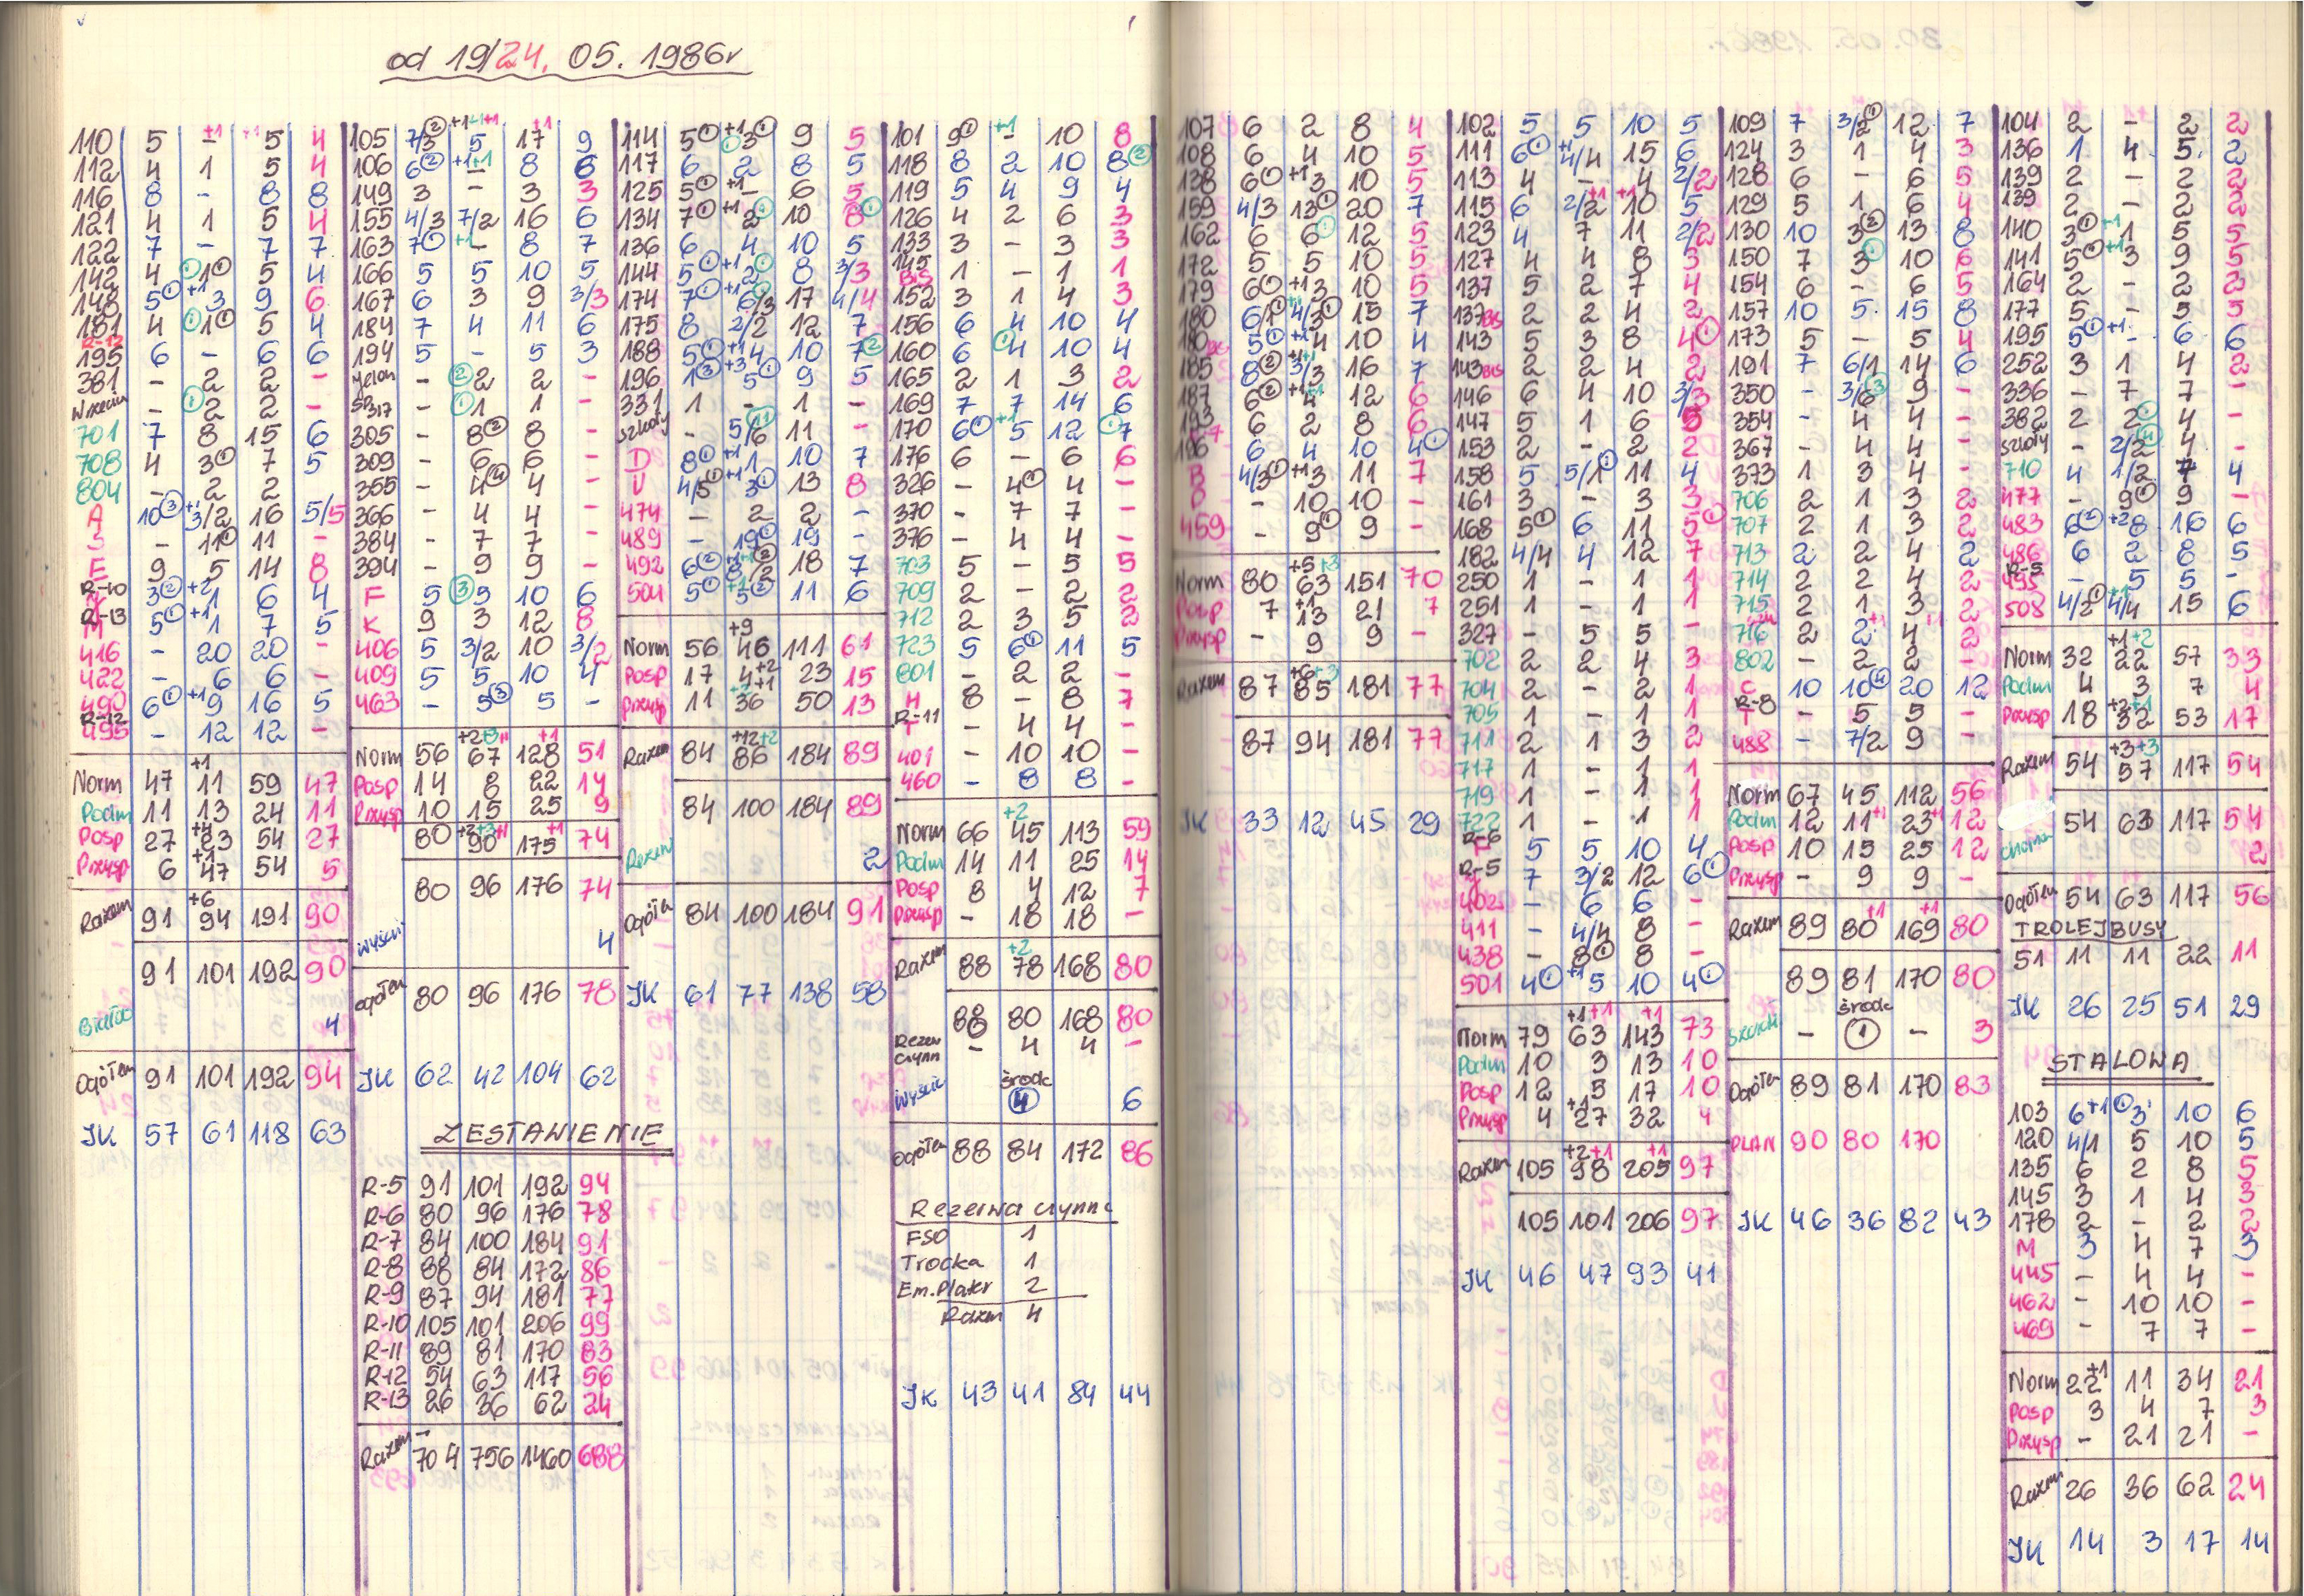 od 19/24. 05. 1986r
110 5 - 5 4
112 4 1 5 4
116 8 - 8 8
121 4 1 5 4
122 7 - 7 7
142 4 ①1① 5 4
148 5① +1 3 9 6
181 4 ①1① 5 4
R-12
195 6 - 6 6
381 - 2 2 -
Wrzeciu - ①2 2 -
701 7 8 15 6
708 4 3① 7 5
804 - 2 2
A 10③ +1 3/2 16 5/5
- 11① 11 -
E 9 5 14 8
R-10
3② +2 1 6 4
R-13
M 5① +1 1 7 5
416 - 20 20 -
422 - 6 6 -
490 6① +1 9 16 5
R-12
495 - 12 12 -
Norm 47 +1 11 59 47
Podm 11 13 24 11
Posp 27 +4 23 54 27
Przysp 6 +1 47 54 5
Razem 91 +6 94 191 90
91 101 192 90
4
Ogółem 91 101 192 94
JK 57 61 118 63
105 7/3② 5 17 9
106 6② +1 +1 - 8 6
149 3 - 3 3
155 4/3 7/2 16 6
163 7① +1 - 8 7
166 5 5 10 5
167 6 3 9 3/3
184 7 4 11 6
194 5 - 5 3
- ②2 2 -
SP 317 - ①1 1 -
305 - 8② 8 -
309 - 6 6 -
355 - 4④ 4 -
366 - 4 4 -
384 - 7 7 -
394 - 9 9 -
F 5 ③5 10 6
K 9 3 12 8
406 5 3/2 10 3/2
409 5 5 10 4
463 - 5③ 5 -
Norm 56 67 128 51
Posp 14 8 22 14
Przysp 10 15 25 9
80 90 175 74
80 96 176 74
wyścii 4
Ogółem 80 96 176 78
JK 62 42 104 62
ZESTAWIENIE
R-5 91 101 192 94
R-6 80 96 176 78
R-7 84 100 184 91
R-8 88 84 172 86
R-9 87 94 181 77
R-10 105 101 206 99
R-11 89 81 170 83
R-12 54 63 117 56
R-13 26 36 62 24
Razem 704 756 1460 688
114 5① +1 3① 9 5
117 6 2 8 5
125 5① +1 - 6 5
134 7① +1 2① 10 8①
136 6 4 10 5
144 5① +1 2① 8 3/3
174 7① +1 6/3 17 4/4
175 8 2/2 12 7
188 5① +1 4 10 7②
196 1③ +3 5① 9 5
331 1 - 1 -
szkoły - 5/6 11 -
D 8① +1 1 10 7
U 4/5① +1 3① 13 8
474 - 2 2 -
489 - 19① 19 -
492 6② 18 7
504 5① 5② 11 6
Norm 56 +9 46 111 61
Posp 17 4 +2 23 15
Przysp 11 36 50 13
Razem 84 +12 +2 86 184 89
84 100 184 89
Rezerw 2
Ogółem 84 100 184 91
JK 61 77 138 58
101 9① +1 - 10 8
118 8 2 10 8②
119 5 4 9 4
126 4 2 6 3
133 3 - 3 3
145 BIS 1 - 1 1
152 3 1 4 3
156 6 4 10 4
160 6 ①4 10 4
165 2 1 3 2
169 7 7 14 6
170 6① +1 5 12 ①7
176 6 - 6 6
326 - 4① 4 -
370 - 7 7 -
376 - 4 4 -
703 5 - 5 5
709 2 - 2 2
712 2 3 5 2
723 5 6① 11 5
801 - 2 2 -
H 8 - 8 7
R-11
T - 4 4 -
401 - 10 10 -
460 - 8 8 -
Norm 66 +2 45 113 59
Podm 14 11 25 14
Posp 8 4 12 7
Przysp - 18 18 -
Razem 88 +2 78 168 80
88 80 168 80
Rezer czynn - 4 4 -
wyścii środk ④ 6
Ogółem 88 84 172 86
Rezerwa czynna
FSO 1
Trocka 1
Em.Plater 2
Razem 4
JK 43 41 84 44
107 6 2 8 4
108 6 4 10 5
138 6① +1 3 10 5
159 4/3 13① 20 7
162 6 6① 12 5
172 5 5 10 5
179 6① +1 3 10 5
180 6/1① 4/3① 15 7
180 BIS 5① +1 4 10 4
185 8② 3/3 16 7
187 6② 4 12 6
193 6 2 8 6
196 6 4 10 4①
B 4/3① +1 3 11 7
- 10 10 -
459 - 9① 9 -
Norm 80 +5 +3 63 151 70
Posp 7 +1 13 21 7
Przysp - 9 9 -
Razem 87 +6 +3 85 181 77
87 94 181 77
JK 33 12 45 29
102 5 5 10 5
111 6① +1 4/4 15 6
113 4 - 4 2/2
115 6 2/2 +1 +1 10 5
123 4 7 11 2/2
127 4 4 8 3
137 5 2 7 4
137 BIS 2 2 4 2
143 5 3 8 4①
143 BIS 2 2 4 2
146 6 4 10 3/3
147 5 1 6 5
153 2 - 2 2
158 5 5/1① 11 4
161 3 - 3 3
168 5① 6 11 5①
182 4/4 4 12 7
250 1 - 1 1
251 1 - 1 1
327 - 5 5 -
702 2 2 4 3
704 2 - 2 1
705 1 - 1 1
711 2 1 3 2
717 1 - 1 1
719 1 - 1 1
722 1 - 1 1
R-6
5 5 10 4
R-5
7 3/2 12 6①
402 - 6 6 -
411 - 4/4 8 -
438 - 8① 8 -
501 4① +1 5 10 4①
Norm 79 +1 +1 63 +1 143 73
Podm 10 3 13 10
Posp 12 5 17 10
Przysp 4 +1 27 32 4
Razem 105 +2 +1 98 +1 205 97
105 101 206 97
JK 46 47 93 41
109 7 3/2① 12 7
124 3 1 4 3
128 6 - 6 5
129 5 1 6 4
130 10 3② 13 8
150 7 3① 10 6
154 6 - 6 5
157 10 5 15 8
173 5 - 5 4
191 7 6/1 14 6
350 - 3/6③ 9 -
354 - 4 4 -
367 - 4 4 -
373 1 3 4 -
706 2 1 3 2
707 2 1 3 2
713 2 2 4 2
714 2 2 4 2
715 2 1 3 2
716 2 2 4 2
802 - 2 2 -
C 10 10④ 20 12
R-8
T - 5 5 -
488 - 7/2 9 -
Norm 67 45 112 56
Podm 12 11 +1 23 +1 12
Posp 10 15 25 12
Przysp - 9 9 -
Razem 89 80 +1 169 +1 80
89 81 170 80
środk
- ① - 3
Ogółem 89 81 170 83
PLAN 90 80 170
JK 46 36 82 43
104 2 - 2 2
136 1 4 5 2
139 2 - 2 2
139 2 - 2 2
140 3① +1 1 5 5
141 5① +1 3 9 5
164 2 - 2 2
177 5 - 5 5
195 5① +1 - 6 6
252 3 1 4 2
336 - 7 7 -
382 2 2① 4 -
szkoły - 2/2④ 4 -
710 4 1/2 7 4
477 - 9① 9 -
483 6② +2 8 16 6
486 6 2 8 5
R-5
495 - 5 5 -
508 4/2① +1 4/4 15 6
Norm 32 +1 +2 22 57 33
Podm 4 3 7 4
Przysp 18 +2 +1 32 53 17
Razem 54 +3 +3 57 117 54
54 63 117 54
2
Ogółem 54 63 117 56
TROLEJBUSY
51 11 11 22 11
JK 26 25 51 29
STALOWA
103 6 +1① 3 10 6
120 4/1 5 10 5
135 6 2 8 5
145 3 1 4 3
178 2 - 2 2
M 3 4 7 3
445 - 4 4 -
462 - 10 10 -
469 - 7 7 -
Norm 22 +1 11 34 21
Posp 3 4 7 3
Przysp - 21 21 -
Razem 26 36 62 24
JK 14 3 17 14